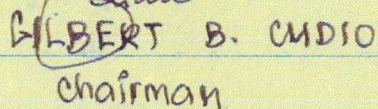 GILBERT B. CUDIO
Chairman